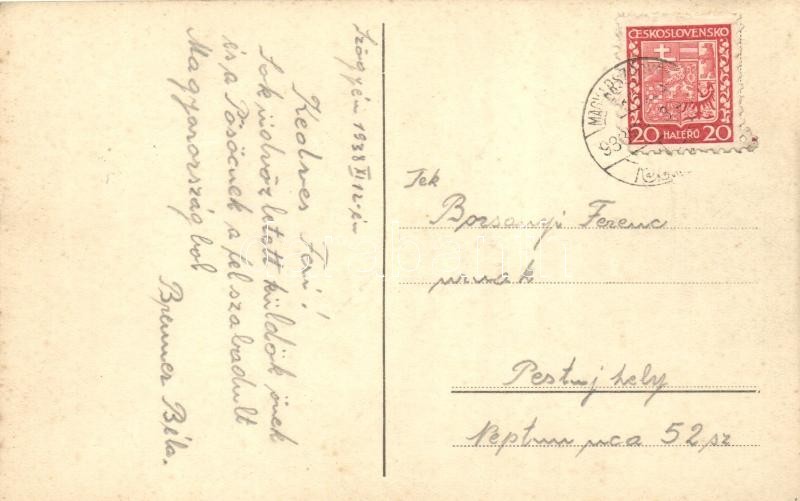 Szőgyén 1938 XI 12-én
Kedves Feri!
Sok üdvözletett küldök önek
és a Pösöcnek a felszabadult
Magyarországból
Brenner Béla.
ČESKOSLOVENSKO
20 HALÉŘŮ 20
Tek
Borsanyi Ferenc
urnak
Pestujhely
Neptun uca 52 sz